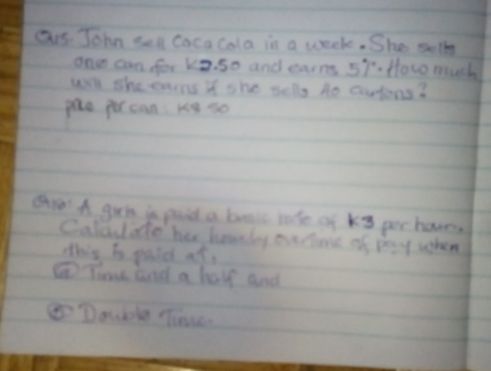 Qus. John sell Coca Cola in a week. She sells
one can for K2.50 and earns 5%. How much
will she earns if she sells 40 cartons?
price per can: K8.50
A girls is paid a basic rate of K3 per hour.
Calculate her hourly overtime of pay when
this is paid at.
Time and a half and
Double Time.